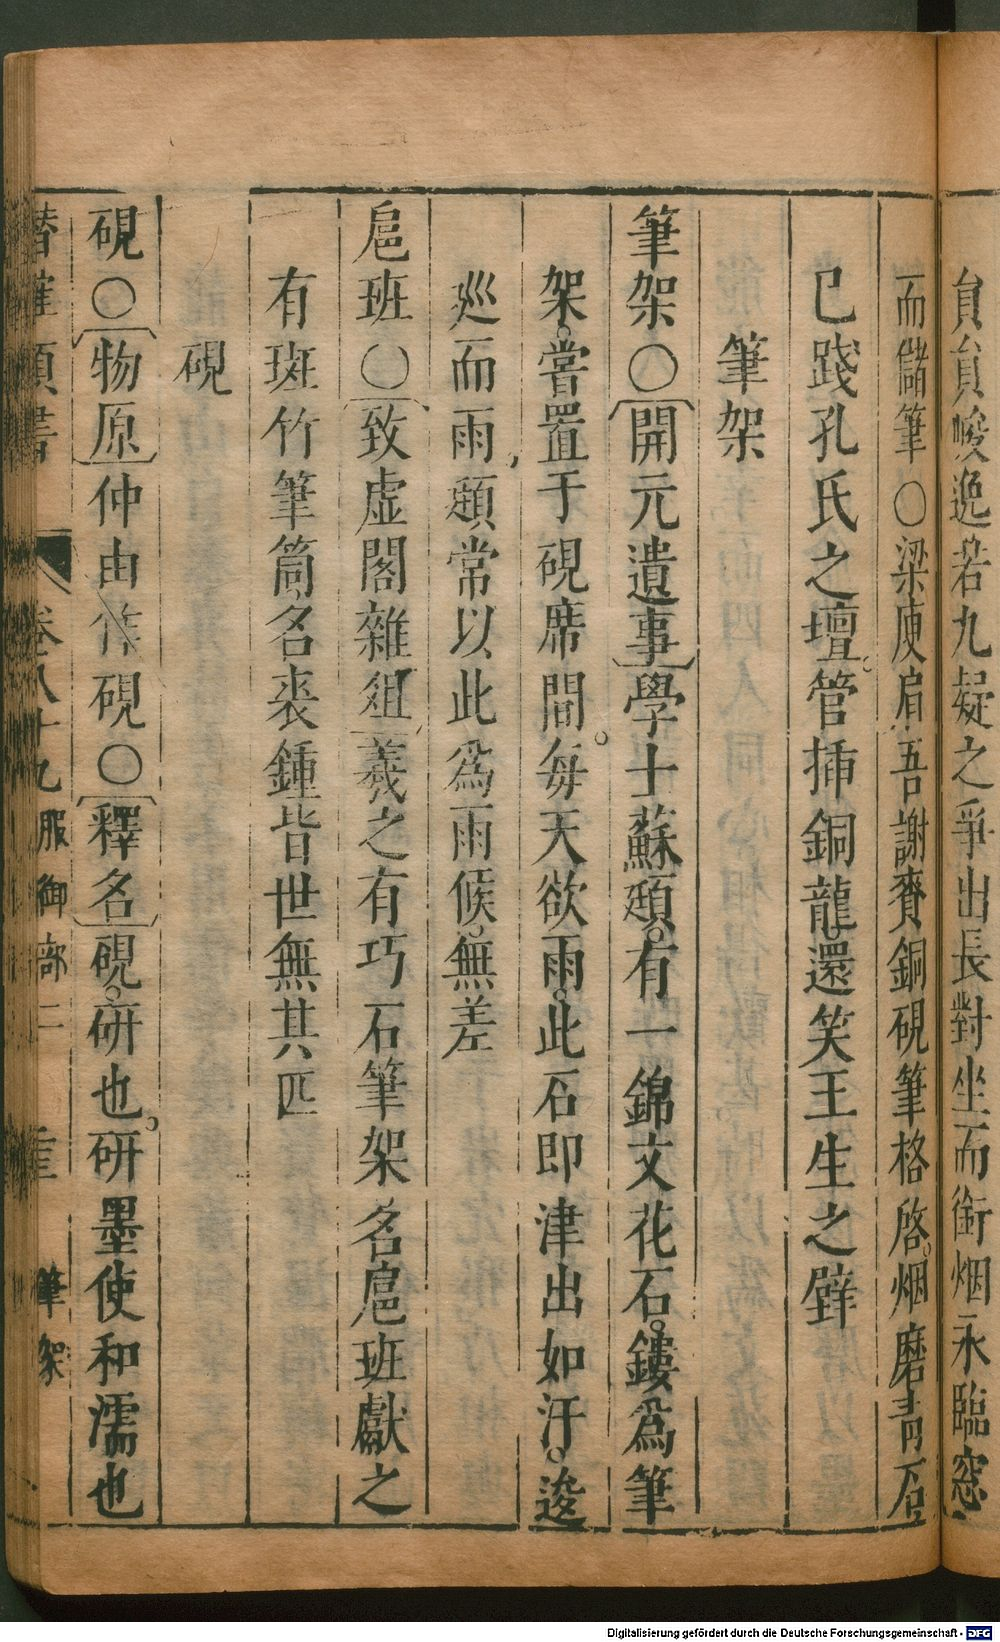 貟貟峻逸若九疑之爭出長對坐而銜烟永臨窓
而儲筆〇梁庾肩吾謝賚銅硯筆格啓烟磨青石
已踐孔氏之壇管揷銅龍還笑王生之璧
筆架
筆架〇開元遺事學士蘇頲有一錦文花石鏤爲筆
架嘗置于硯席間每天欲雨此石卽津出如汗逡
廵而雨頲常以此爲雨候無差
扈班〇致虚閣雜俎羲之有巧石筆架名扈班獻之
有斑竹筆筒名裘鍾皆世無其匹
硯
硯〇物原仲由作硯〇釋名硯研也研墨使和濡也
潛確類書 卷八十九 服御部二 筆架
Digitalisierung gefördert durch die Deutsche Forschungsgemeinschaft - DFG